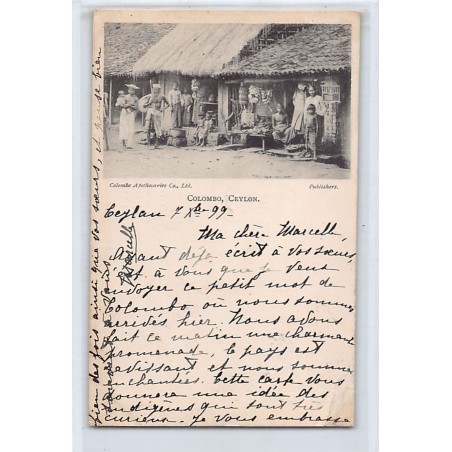 Colombo Apothecaries Co., Ltd.
Publishers.
COLOMBO, CEYLON.
Ceylan 7 Xbre 99
Ma chère Marcelle
Ayant déjà écrit à vos sœurs,
c'est à vous que je veux
envoyer ce petit mot de
Colombo où nous sommes
arrivés hier. Nous avons
fait ce matin une charmante
promenade, le pays est
ravissant et nous sommes
enchantées. Cette carte vous
donnera une idée des
indigènes qui sont très
curieux. Je vous embrasse
bien des fois ainsi que vos sœurs, et pense bien
à vous